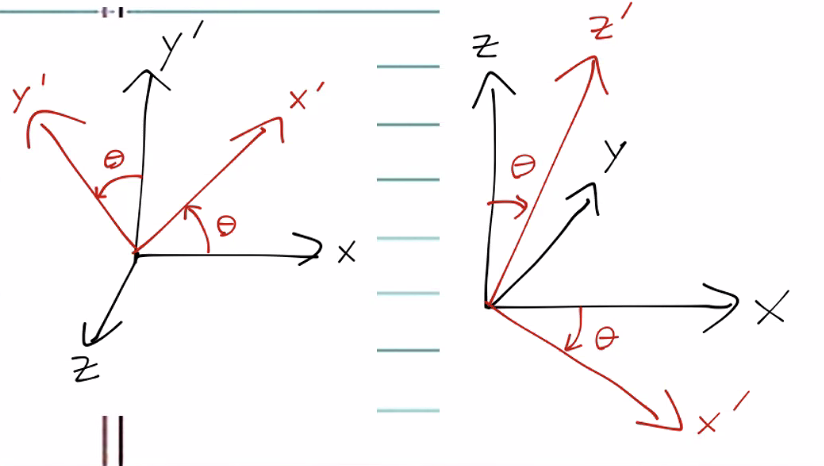 y'
y'
x'
θ
θ
x
z
z
z'
θ
y
x
θ
x'